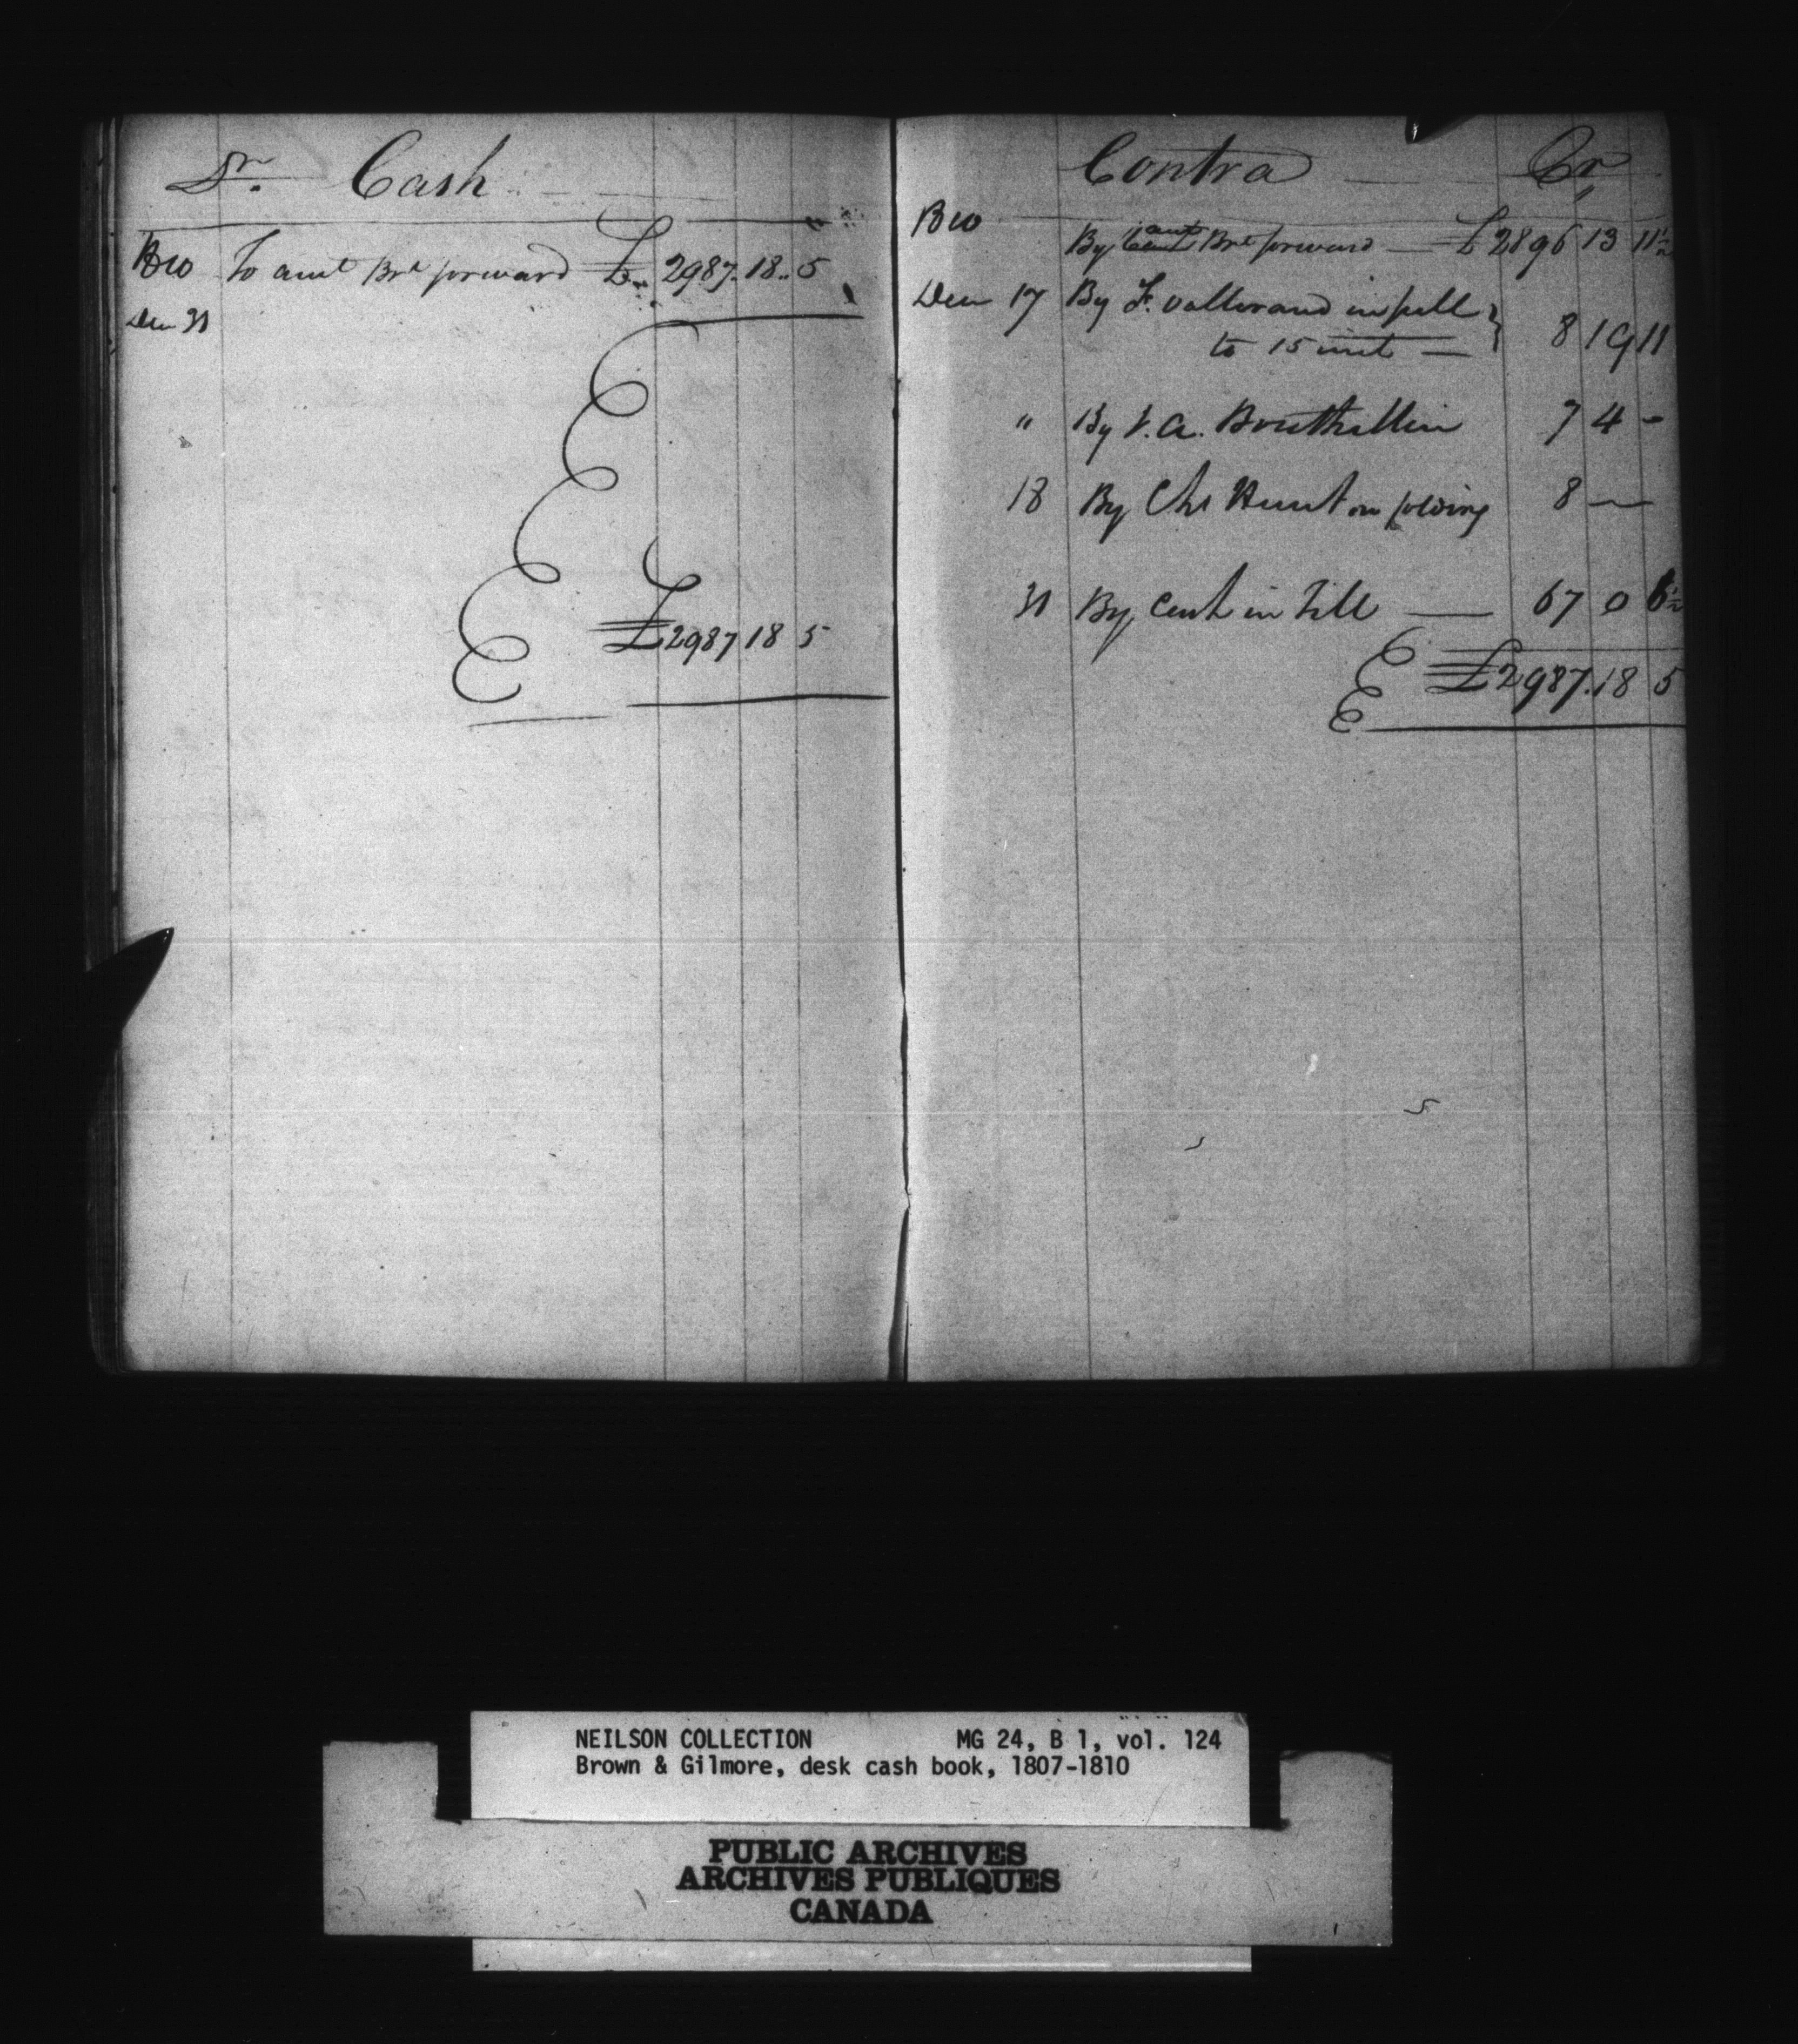 Dr. Cash
1810 To amt Brt forward £ 2987.18..5
Dec 31
£2987 18 5
Contra Cr
1810
By amt Brt forward £2896 13 11½
Dec 17 By F. Vallerand in full
to 15 inst 8 19 11
" By V. A. 7 4 -
18 By Chs Hunt on folding 8
31 By Cash in Till 67 0 6½
£2987.18 5
NEILSON COLLECTION MG 24, B 1, vol. 124
Brown & Gilmore, desk cash book, 1807-1810
PUBLIC ARCHIVES
ARCHIVES PUBLIQUES
CANADA